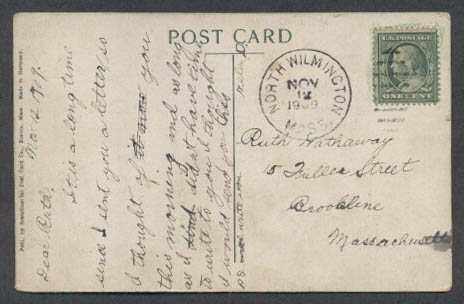 POST CARD
Publ. by Scandinavian Post Card Co., Boston, Mass. Made in Germany.
Nov. 12, 1909.
Dear Ruth,
It is a long time
since I sent you a letter so
I thought I you
this morning and as long
as I don't have time
to write to you I thought
I would send you this
P.S. write soon
NORTH WILMINGTON
NOV
12
1909
MASS.
U.S. POSTAGE
ONE CENT
Ruth Hathaway
5 Fuller Street
Brookline
Massachusetts